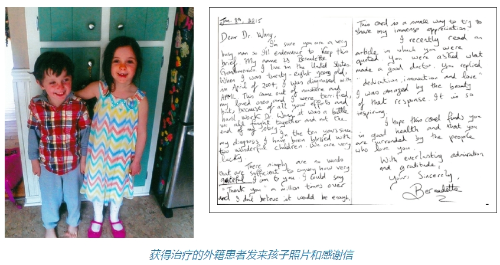 Jan. 29, 2015
Dear Dr. Wang,
I'm sure you are a very
busy man so I'll endeavour to keep this
brief. My name is Bernadette
I live in the United States.
When I was twenty-eight years old,
in April of 2004, I was diagnosed with
APML. This came out of nowhere and
my loved ones and I were terrified,
but, because of all your efforts and
hard work Dr. Wang, it was a battle
we all fought together and not the
end of my story.
In the ten years since
my diagnosis, I have been blessed with
two wonderful children. We are very
lucky.
There simply are no words
that are sufficient to convey how very
grateful I am to you. I could say
"Thank you" a million times over
and I don't believe it would be enough.
This card is a small way to try to
share my immense appreciation.
I recently read an
article in which you were
quoted. You were asked what
made a good doctor. You replied,
"dedication, innovation and love"
I was amazed by the beauty
of that response. It is so
inspiring.
I hope this card finds you
in good health and that you
are surrounded by the people
who love you.
With everlasting admiration
and gratitude,
Yours Sincerely,
Bernadette
获得治疗的外籍患者发来孩子照片和感谢信